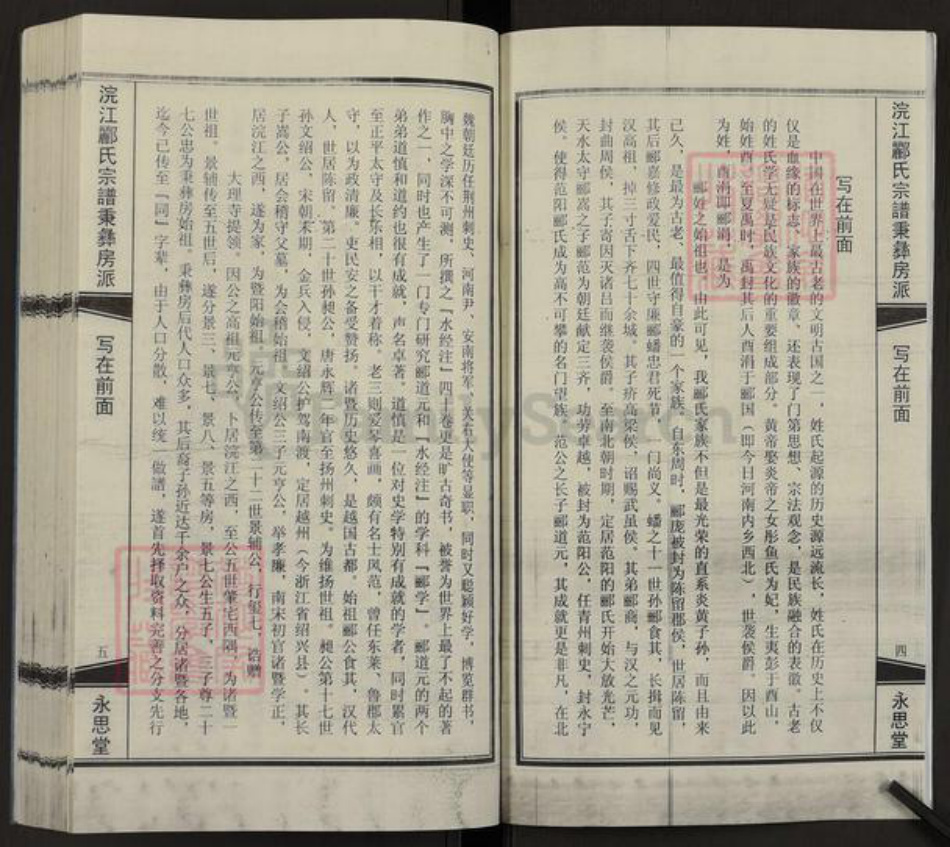 浣江酈氏宗譜秉彝房派
写在前面
四
永思堂
写在前面
中国在世界上最古老的文明古国之一，姓氏起源的历史源远流长，姓氏在历史上不仅
仅是血缘的标志，家族的徽章、还表现了门第思想、宗法观念，是民族融合的表徵。古老
的姓氏学无疑是民族文化的重要组成部分。黄帝娶炎帝之女彤鱼氏为妃，生夷彭于酉山，
始姓酉，至夏禹时，禹封其后人酉涓于郦国（即今日河南内乡西北），世袭侯爵。因以此
为姓，酉涓即郦涓，是为
郦姓之始祖也。由此可见，我郦氏家族不但是最光荣的直系炎黄子孙，而且由来
已久，是最为古老、最值得自豪的一个家族。自东周时，郦庞被封为陈留郡侯，世居陈留，
其后郦嘉修政爱民，四世守廉郦蟠忠君死节，门尚义。蟠之十一世孙郦食其，长揖而见
汉高祖，掉三寸舌下齐七十余城。其子疥高梁侯，诏赐武虽侯、其弟郦商，与汉之元功，
封曲周侯，其子寄因灭诸吕而继袭侯爵。至南北朝时期，定居范阳的郦氏开始大放光芒，
天水太守郦嵩之子郦范为朝廷献定三齐，功劳卓越，被封为范阳公，任青州刺史，封永宁
侯。使得范阳郦氏成为高不可攀的名门望族。范公之长子郦道元，其成就更是非凡，在北
魏朝廷历任荆州刺史、河南尹、安南将军、关右大使等显职，同时又聪颖好学，博览群书，
胸中之学深不可测，所撰之『水经注』四十卷更是旷古奇书，被誉为世界上最了不起的著
作之一，同时也产生了一门专门研究郦道元和『水经注』的学科『郦学』。郦道元的两个
弟弟道慎和道约也很有成就，声名卓著。道慎是一位对史学特别有成就的学者，同时累官
至正平太守及长乐相，以干才着称。老三则爱琴喜画，颇有名士风范，曾任东莱、鲁郡太
守，以为政清廉。吏民安之备受赞扬。诸暨历史悠久，是越国古都。始祖郦公食其，汉代
人，世居陈留。第二十世孙昶公，唐永辉二年官至扬州刺史。为维扬世祖。昶公第十七世
孙文绍公，宋朝末期，金兵入侵，文绍公护驾南渡，定居越州（今浙江省绍兴县）。其长
子嵩公，居会稽守父墓，为会稽始祖。文绍公三子元亨公，举孝廉，南宋初官诸暨学正，
居浣江之西，遂为家，为暨阳始祖。元亨公传至第二十二世景辅公，行玺七，诰赠
大理寺提领。因公之高祖元亨公，卜居浣江之西，至公五世肇宅西隅，为诸暨一
世祖。景辅传至五世后，遂分景三、景七、景八、景五等房，景七公生五子，三子尊二十
七公忠为秉彝房始祖。秉彝房后代人口众多，其后裔子孙近达千余户之众，分居诸暨各地，
迄今已传至『同』字辈，由于人口分散，难以统一做譜，遂首先择取资料完善之分支先行
浣江酈氏宗譜秉彝房派
写在前面
五
永思堂
FamilySearch